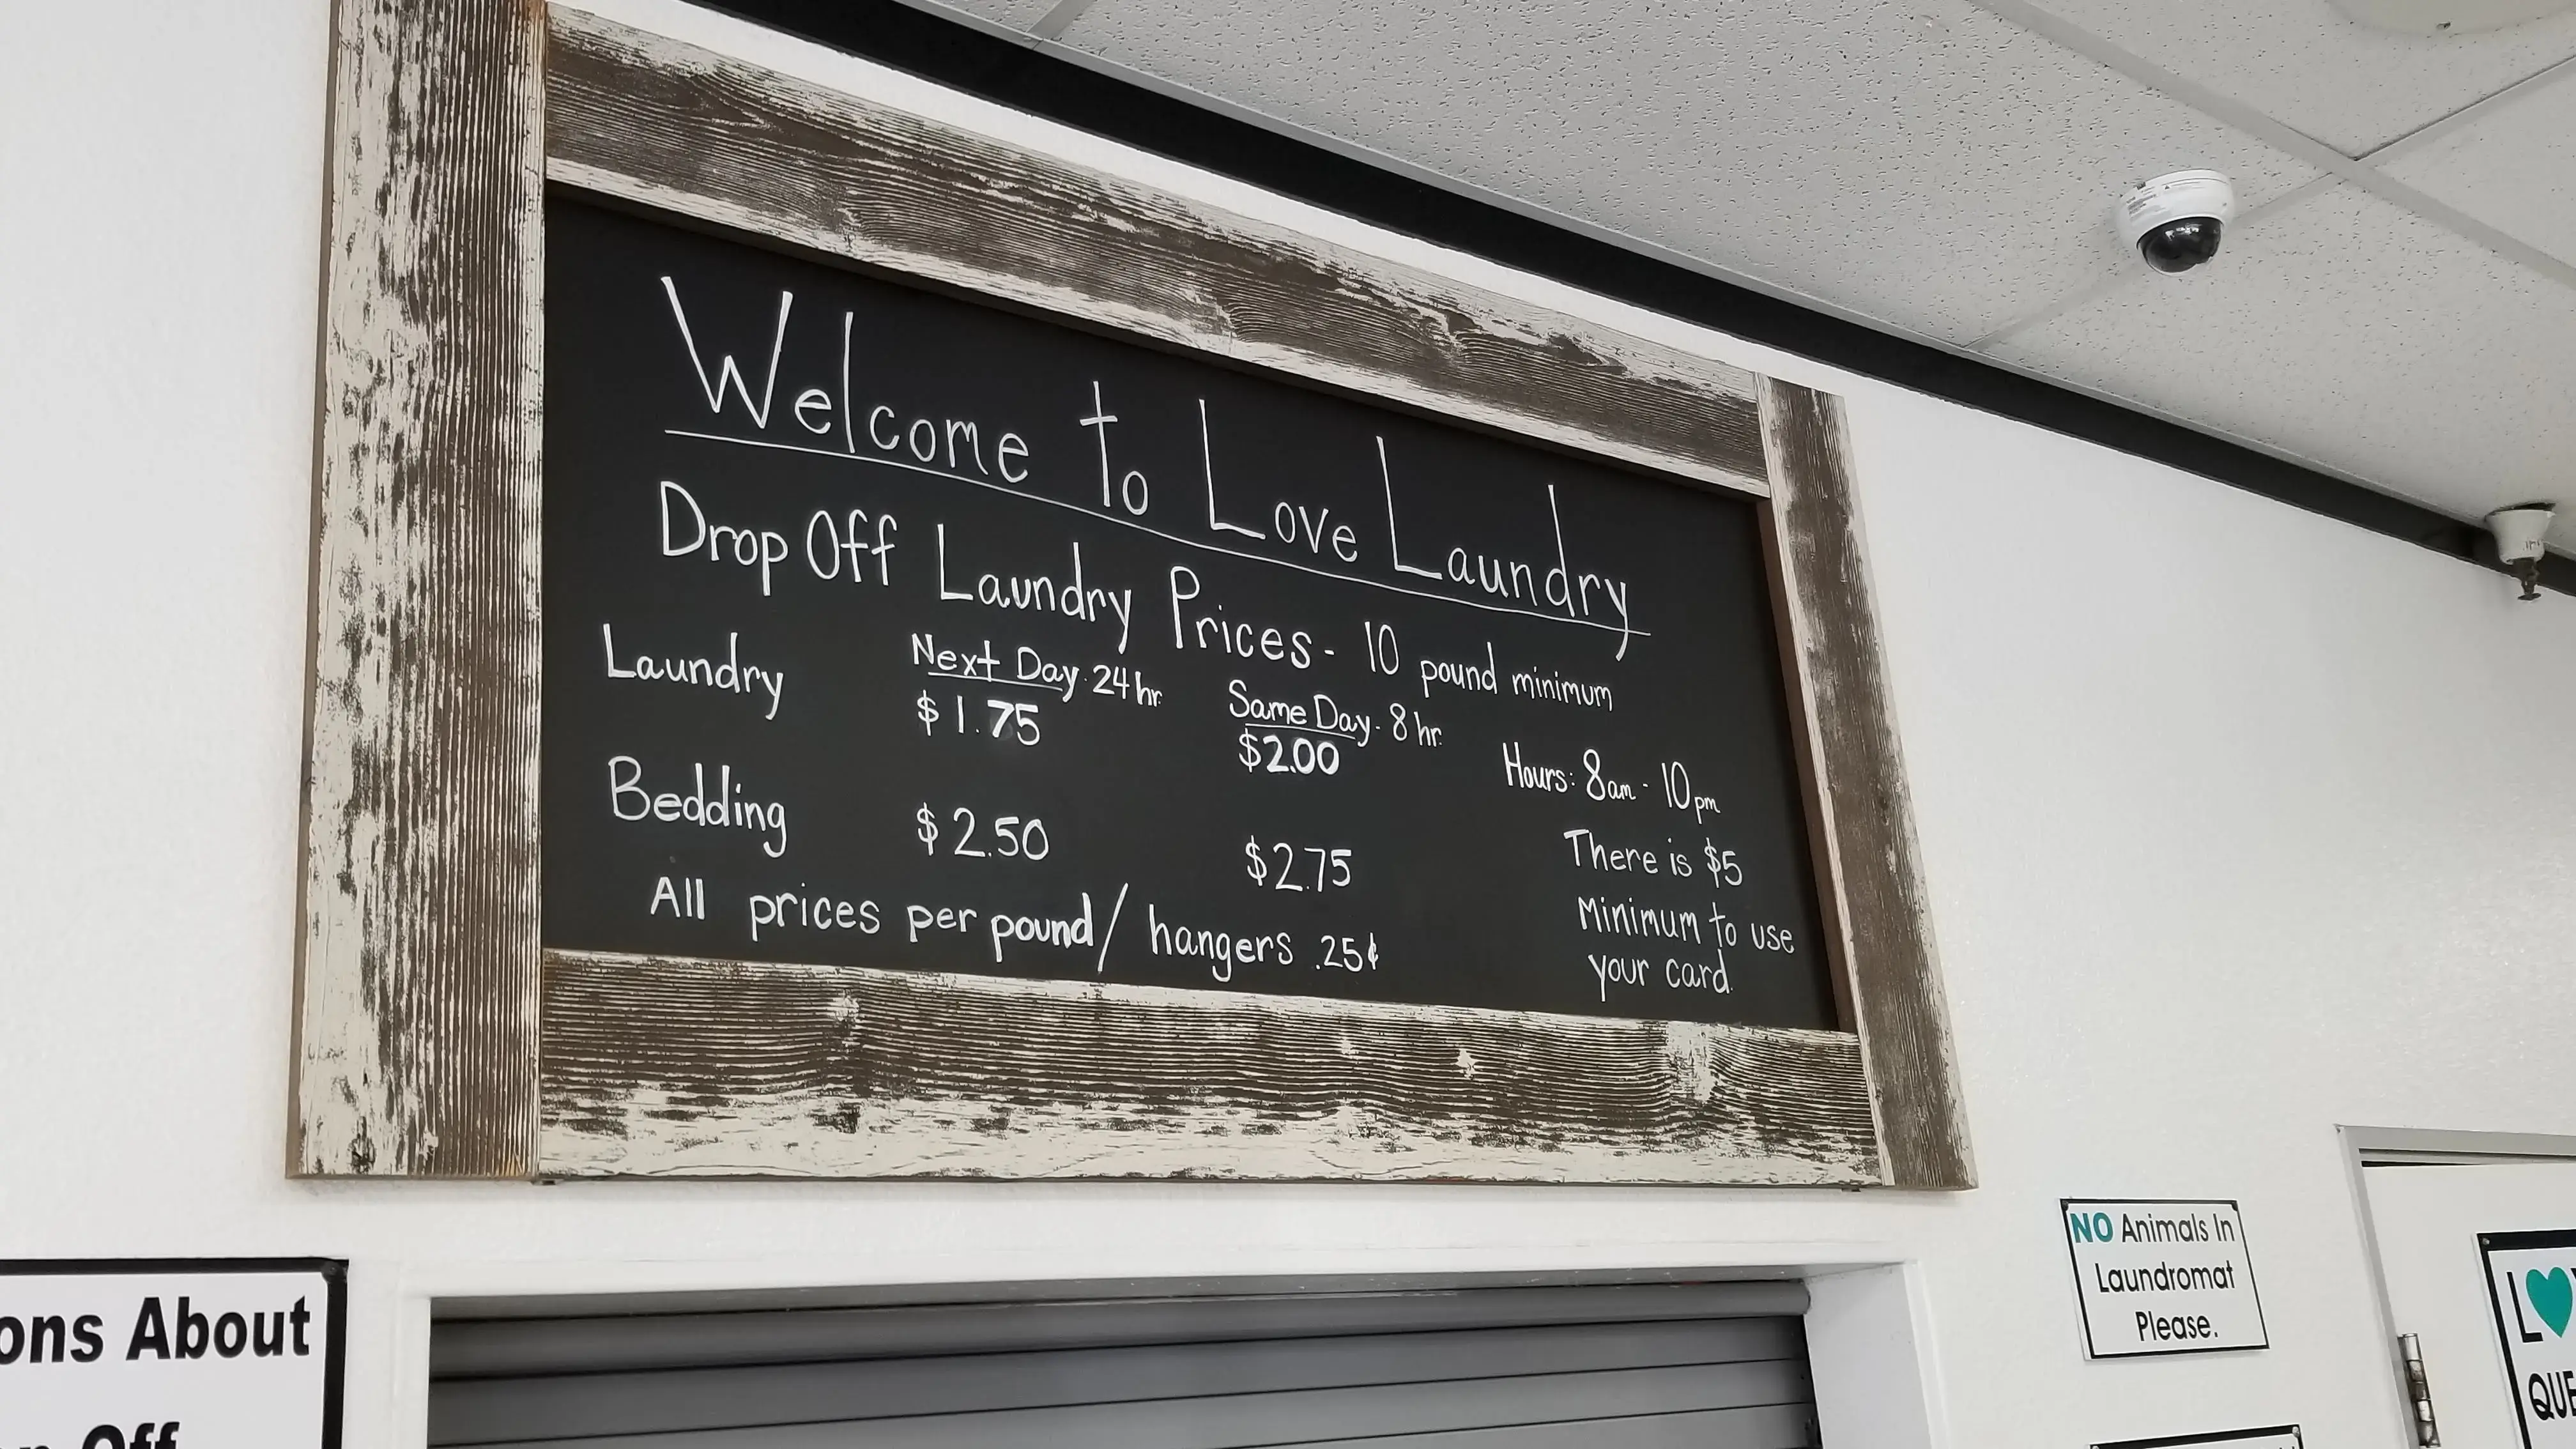 Welcome to Love Laundry
Drop Off Laundry Prices - 10 pound minimum
Laundry Next Day - 24 hr. Same Day - 8 hr.
$1.75 $2.00
Hours: 8am - 10pm
Bedding $2.50 $2.75
All prices per pound/ hangers .25¢
There is $5
Minimum to use
your card.
ons About
Off
NO Animals In
Laundromat
Please.